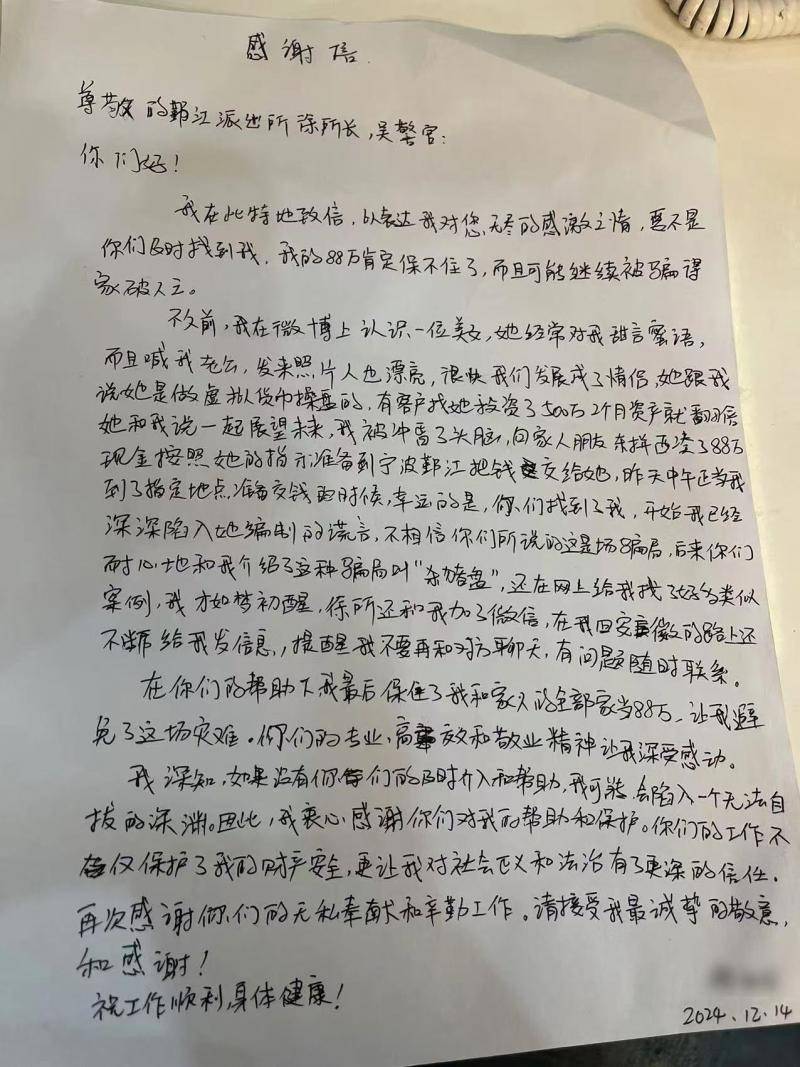 感谢信.
尊敬的鄞江派出所徐所长,吴警官:
你们好!
我在此特地致信,以表达我对您无尽的感激之情,要不是
你们及时找到我,我的88万肯定保不住了,而且可能继续被骗得
家破人亡。
不久前,我在微博上认识一位美女,她经常对我甜言蜜语,
而且喊我老公,发来照片人也漂亮,很快我们发展成了情侣,她跟我
说她是做虚拟货币操盘的,有客户找她投资了500万2个月资产就翻倍
她和我说一起展望未来,我被冲昏了头脑,向家人朋友东拼西凑了88万
现金按照她的指示准备到宁波鄞江把钱交给她,昨天中午正当我
到了指定地点准备交钱的时候,幸运的是,你们找到了我,开始我已经
深深陷入她编制的谎言,不相信你们所说的这是场骗局,后来你们
耐心地和我介绍了这种骗局叫"杀猪盘",还在网上给我找了好多类似
案例,我才如梦初醒,徐所还和我加了微信,在我回安徽的路上还
不断给我发信息,提醒我不要再和对方聊天,有问题随时联系。
在你们的帮助下我最后保住了我和家人的全部家当88万,让我避
免了这场灾难。你们的专业、高效和敬业精神让我深受感动。
我深知,如果没有你们的及时介入和帮助,我可能会陷入一个无法自
拔的深渊。因此,我衷心感谢你们对我的帮助和保护。你们的工作不
仅保护了我的财产安全,更让我对社会正义和法治有了更深的信任.
再次感谢你们的无私奉献和辛勤工作。请接受我最诚挚的敬意,
和感谢!
祝工作顺利,身体健康!
2024.12.14